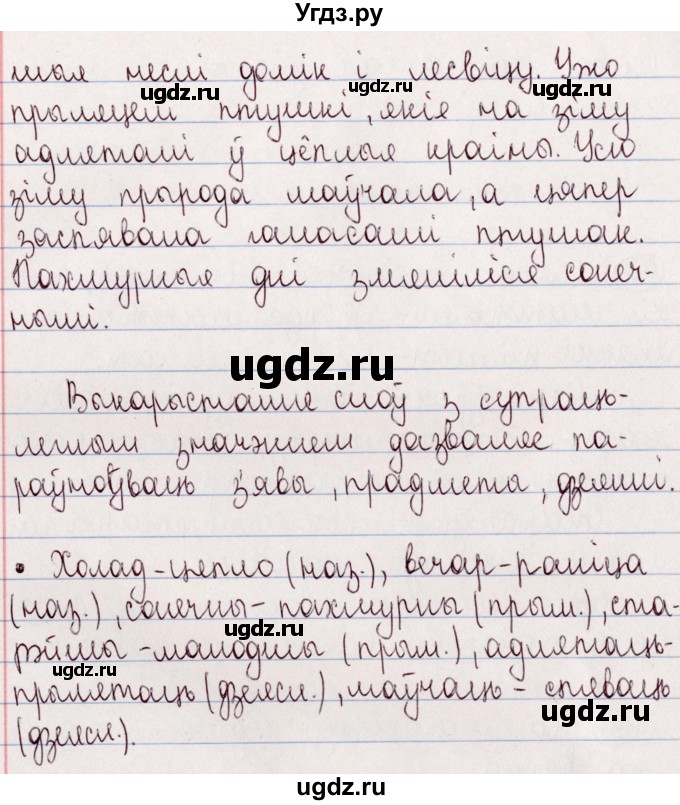 Угдз.ру
шыя неслі домік і лесвіцу. Ужо
прыляцелі птушкі, якія на зіму
адляталі ў цёплыя краіны. Усю
зіму прырода маўчала, а цяпер
заспявала галасамі птушак.
Пахмурныя дні змяніліся сонеч-
нымі.
Выкарыстанне слоў з супраць-
леглым значэннем дазваляе па-
раўноўваць з'явы, прадметы, дзеянні.
• Холад - цяпло (наз.), вечар - раніца
(наз.), сонечны - пахмурны (прым.), ста-
рэйшы - малодшы (прым.), адлятаць-
прылятаць (дзеясл.), маўчаць - спяваць
(дзеясл.).
ugdz.ru
ugdz.ru
ugdz.ru
ugdz.ru
ugdz.ru
ugdz.ru
ugdz.ru
ugdz.ru